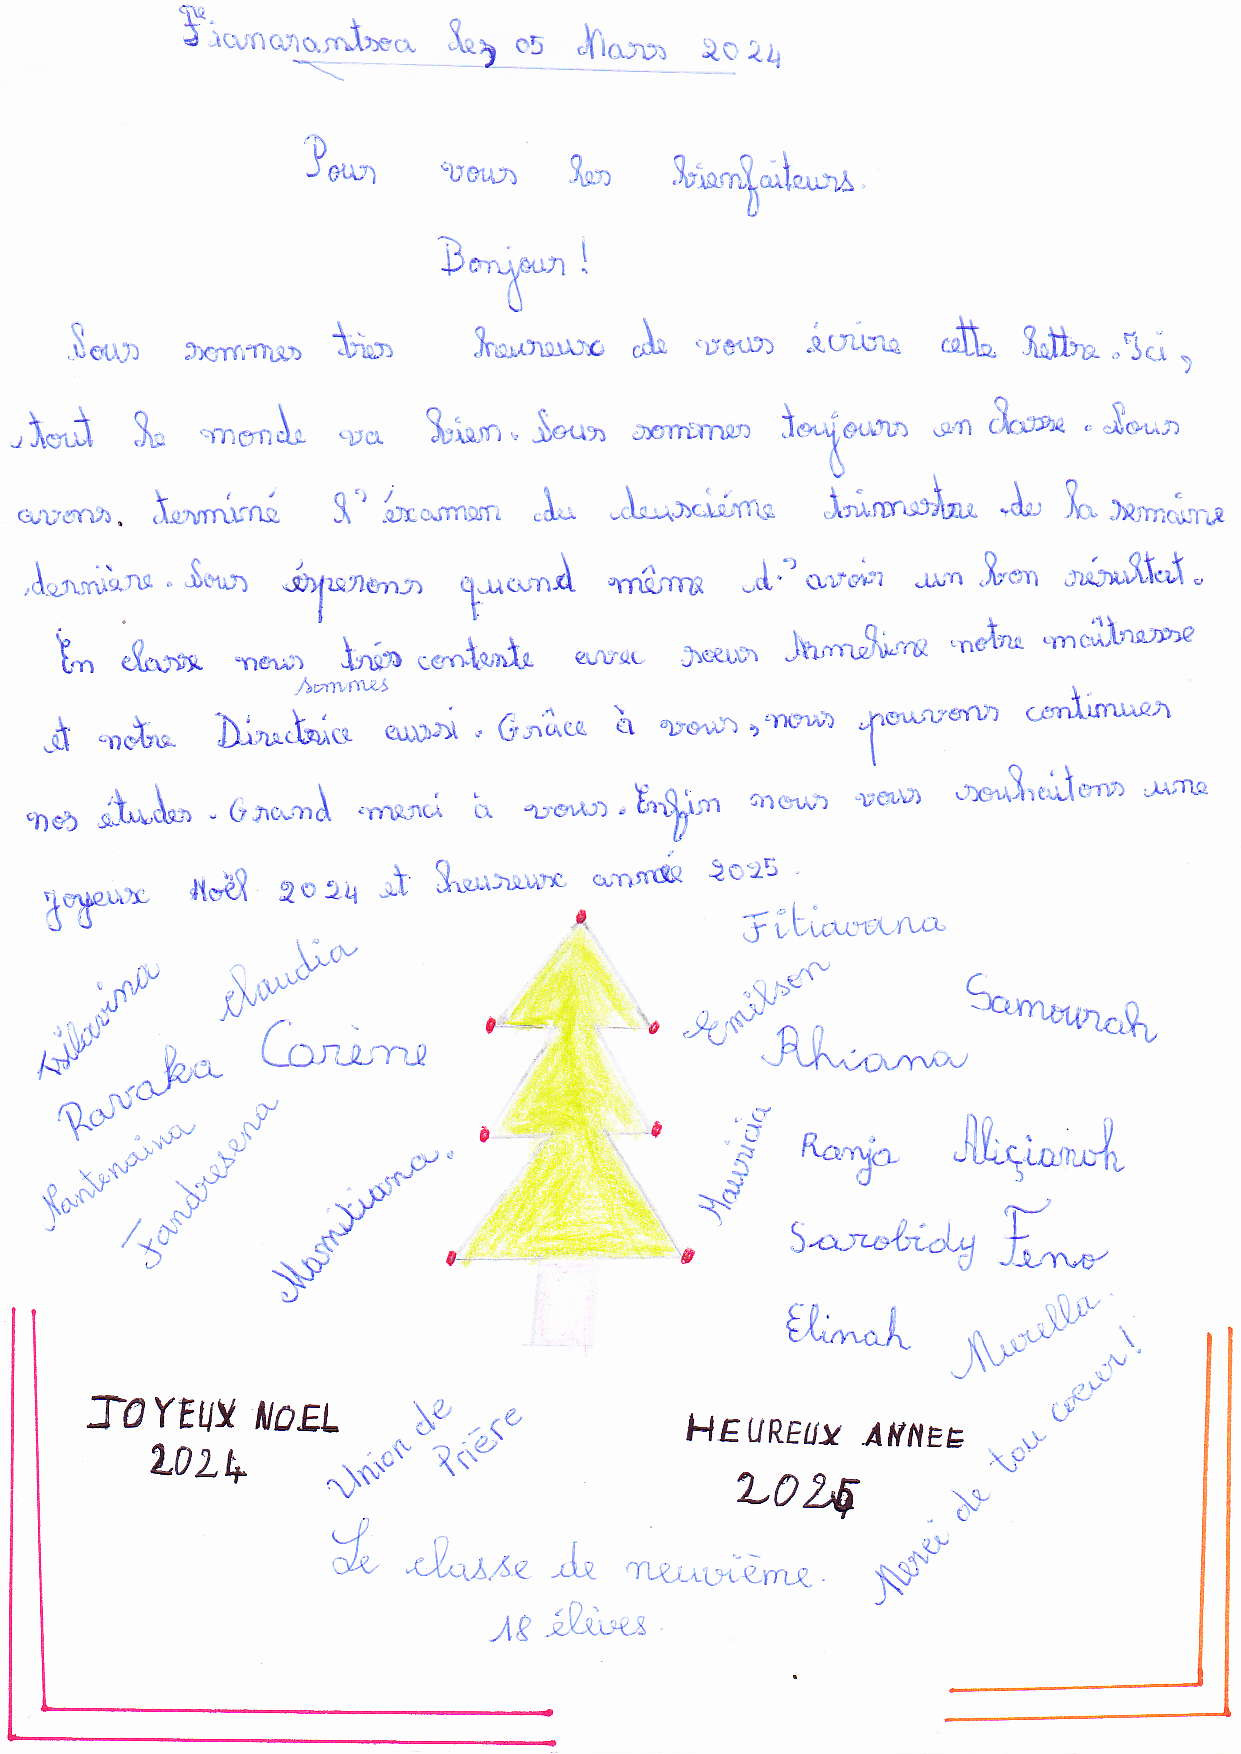 Fianarantsoa le 05 Mars 2024
Pour vous les bienfaiteurs.
Bonjour !
Nous sommes très heureux de vous écrire cette lettre. Ici,
tout le monde va bien. Nous sommes toujours en classe. Nous
avons. terminé l'éxamen du deuxiéme trimestre de la semaine
dernière. Nous ésperons quand même d'avoir un bon résultat.
En classe nous sommes trés contente avec soeur Armeline notre maîtresse
et notre Directrice aussi. Grâce à vous, nous pouvons continuer
nos études. Grand merci à vous. Enfin nous vous souhaitons une
joyeux Noël 2024 et heureux année 2025.
Fitiavana
Claudia
Emilson
Samourah
Ravaka
Carène
Rhiana
Nantenaina
Fandresena
Mamitiana.
Mauricia
Ranja
Aliçianoh
Sarobidy
Feno
Elinah
Murella.
JOYEUX NOEL
2024
Union de
Prière
HEUREUX ANNEE
2025
Merci de tou coeur !
Le classe de neuvième.
18 élèves.